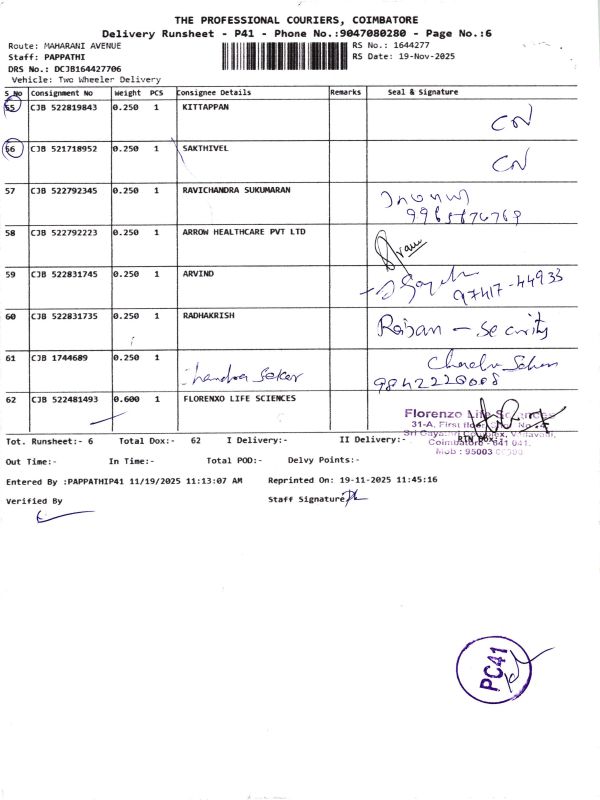 THE PROFESSIONAL COURIERS, COIMBATORE
Delivery Runsheet - P41 - Phone No.:9047080280 - Page No.:6
Route: MAHARANI AVENUE
Staff: PAPPATHI
DRS No.: DCJB164427706
Vehicle: Two Wheeler Delivery
RS No.: 1644277
RS Date: 19-Nov-2025
S No Consignment No Weight PCS Consignee Details Remarks Seal & Signature
55 CJB 522819843 0.250 1 KITTAPPAN CN
56 CJB 521718952 0.250 1 SAKTHIVEL CN
57 CJB 522792345 0.250 1 RAVICHANDRA SUKUMARAN
58 CJB 522792223 0.250 1 ARROW HEALTHCARE PVT LTD
59 CJB 522831745 0.250 1 ARVIND 97417-44933
60 CJB 522831735 0.250 1 RADHAKRISH Raban - Security
61 CJB 1744689 0.250 1 Chandra Seker 9842220008
62 CJB 522481493 0.600 1 FLORENXO LIFE SCIENCES
Florenzo Life Sciences
31-A, First floor,
Coimbatore - 641 041.
Mob : 95003
Tot. Runsheet:- 6 Total Dox:- 62 I Delivery:- II Delivery:- RTN DOX:-
Out Time:- In Time:- Total POD:- Delvy Points:-
Entered By :PAPPATHIP41 11/19/2025 11:13:07 AM Reprinted On: 19-11-2025 11:45:16
Verified By Staff Signature
PC41